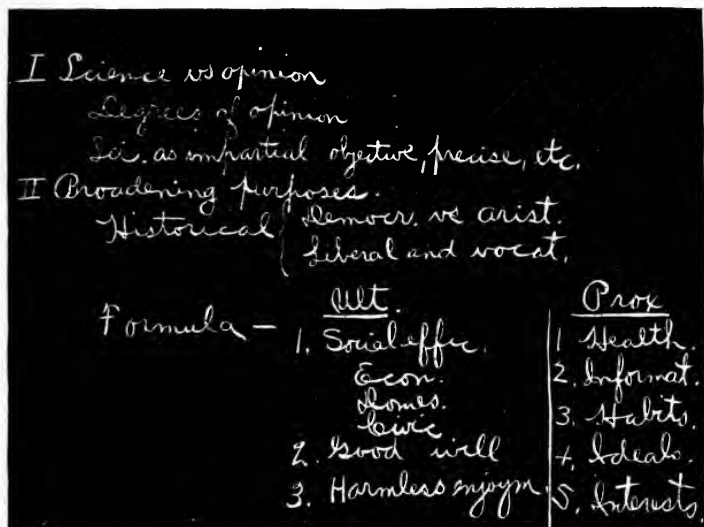 I Science vs opinion
Degrees of opinion
Sci. as impartial objective, precise, etc.
II Broadening purposes.
Historical { Democr. vs arist.
Liberal and vocat.
Formula — Ult.
1. Social effic.
Econ.
Domes.
Civic
2. Good will
3. Harmless enjoym.
Prox
1 Health.
2. Informat.
3. Habits.
4. Ideals.
5. Interests.